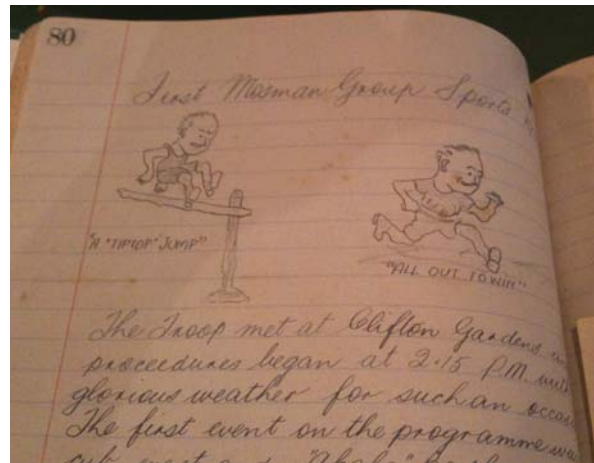 80
First Mosman Group Sports
"A "TIPTOP" JUMP"
"ALL OUT TO WIN"
The Troop met at Clifton Gardens
proceedures began at 2.15 P.M. with
glorious weather for such an
The first event on the programme